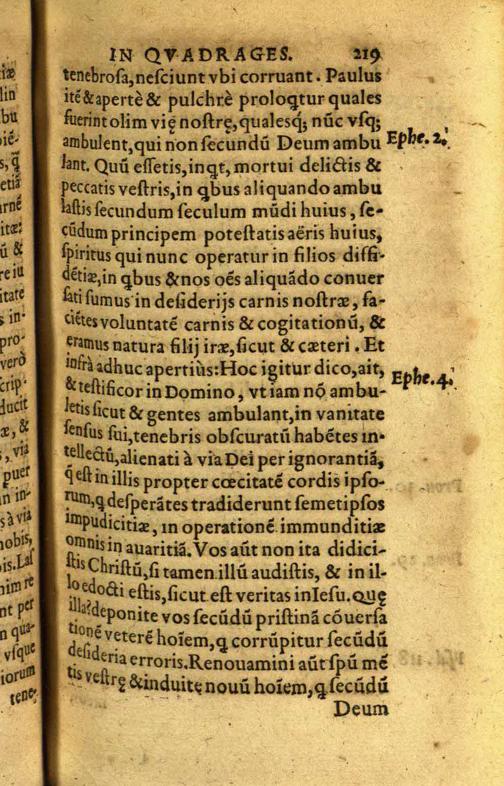 IN QVADRAGES. 219
tenebroſa, neſciunt vbi corruant. Paulus
itẽ & apertè & pulchrè proloq̃tur quales
fuerint olim vię noſtrę, qualesq́; nũc vſq́;
ambulent, qui non ſecundũ Deum ambu
Ephe. 2.
lant. Quũ eſſetis, inq̃t, mortui delictis &
peccatis veſtris, in q̃bus aliquando ambu
laſtis ſecundum ſeculum mũdi huius, ſe-
cũdum principem poteſtatis aëris huius,
ſpiritus qui nunc operatur in filios diffi-
dẽtiæ, in q̃bus & nos oẽs aliquãdo conuer
ſati ſumus in deſiderijs carnis noſtræ, fa-
ciẽtes voluntatẽ carnis & cogitationũ, &
eramus natura filij iræ, ſicut & cæteri. Et
infrà adhuc apertiùs: Hoc igitur dico, ait,
Ephe. 4.
& teſtificor in Domino, vt iam nõ ambu-
letis ſicut & gentes ambulant, in vanitate
ſenſus ſui, tenebris obſcuratũ habẽtes in-
tellectũ, alienati à via Dei per ignorantiã,
q̃ eſt in illis propter cœcitatẽ cordis ipſo-
rum, q̃ deſperãtes tradiderunt ſemetipſos
impudicitiæ, in operationẽ immunditiæ
omnis in auaritiã. Vos aũt non ita didici-
ſtis Chriſtũ, ſi tamen illũ audiſtis, & in il-
lo edocti eſtis, ſicut eſt veritas in Ieſu. Quę
illa? deponite vos ſecũdũ priſtinã cõuerſa
tionẽ veterẽ hoĩem, q̃ corrũpitur ſecũdũ
deſideria erroris. Renouamini aũt ſpũ mẽ
tis veſtrę & induitę nouũ hoĩem, q̃ ſecũdũ
Deum